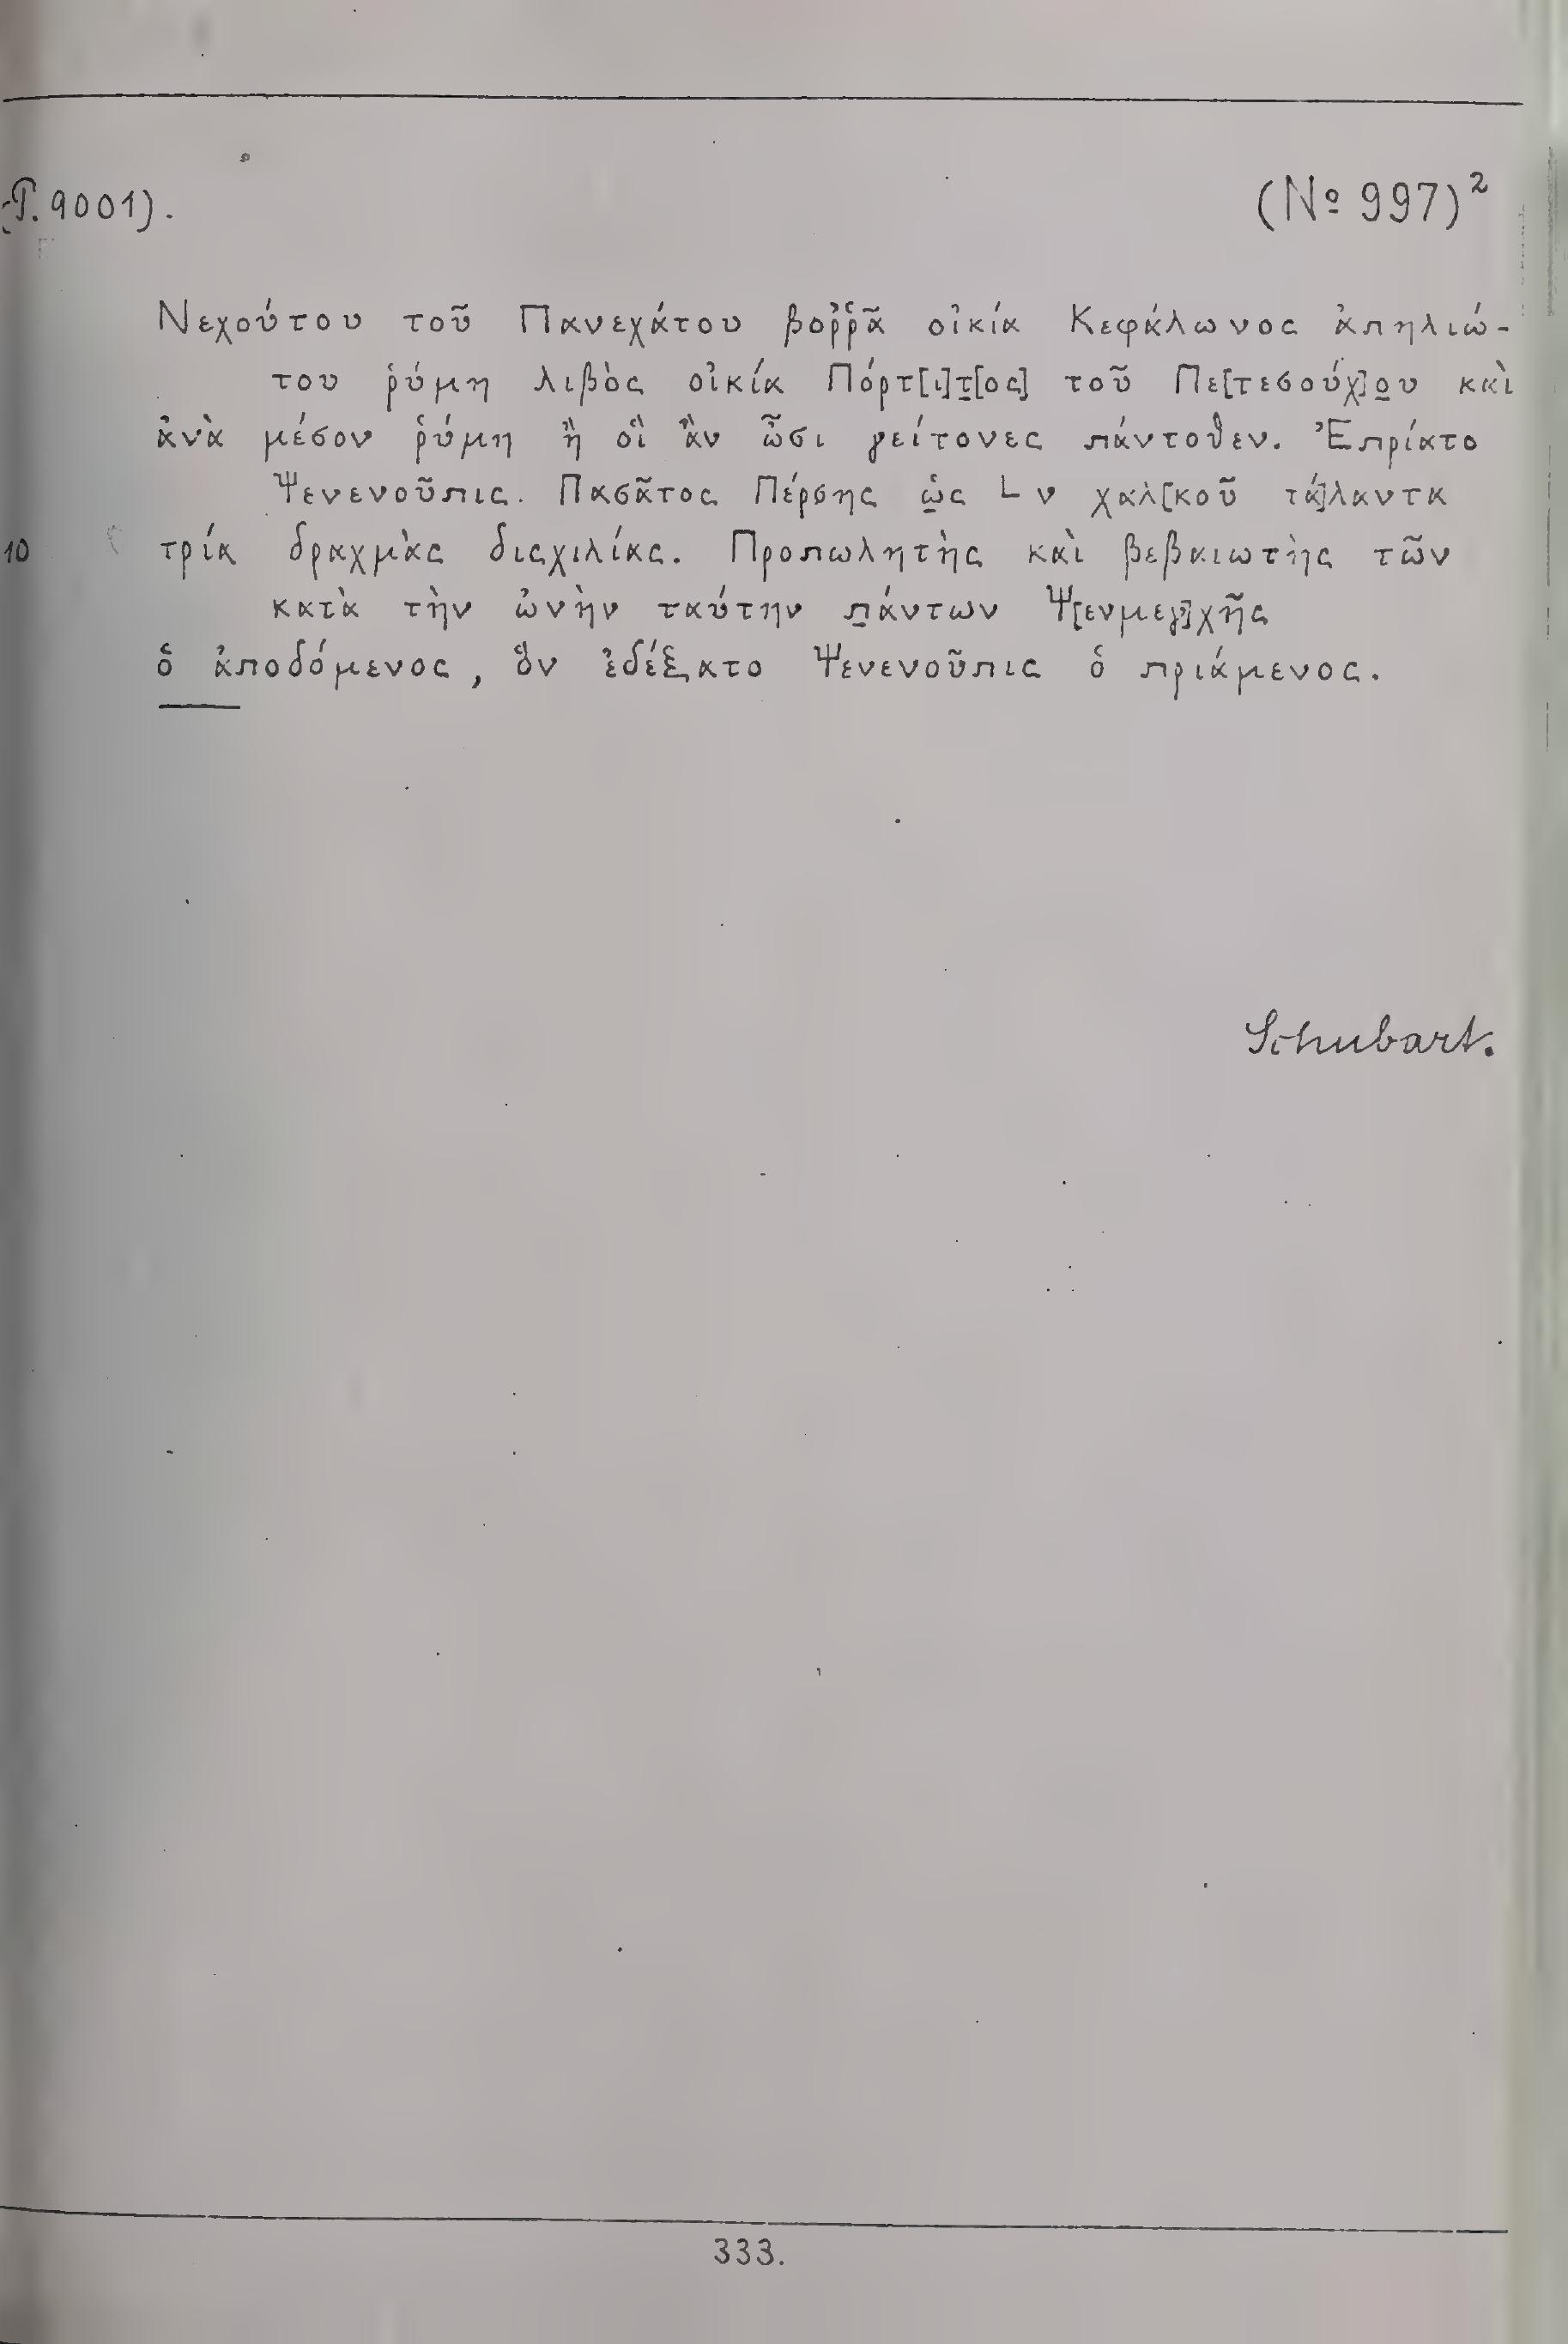 (P. 9001).
(No 997)²
Νεχούτου τοῦ Πανεχάτου βοῤῥᾶ οἰκία Κεφάλωνος ἀπηλιώ-
του ῥύμη λιβὸς οἰκία Πόρτ[ι]τ̣[ος] τοῦ Πε[τεσούχ]ο̣υ καὶ
ἀνὰ μέσον ῥύμη ἢ οἳ ἂν ὦσι γείτονες πάντοθεν. Ἐπρίατο
Ψενενοῦπις. Πασᾶτος Πέρσης ὡ̣ς L ν χαλ[κοῦ τά]λαντα
10 τρία δραχμὰς διςχιλίας. Προπωλητὴς καὶ βεβαιωτὴς τῶν
κατὰ τὴν ὠνὴν ταύτην π̣άντων Ψ[ενμεγ]χῆς
ὁ ἀποδόμενος, ὃν ἐδέξατο Ψενενοῦπις ὁ πριάμενος.
Schubart.
333.